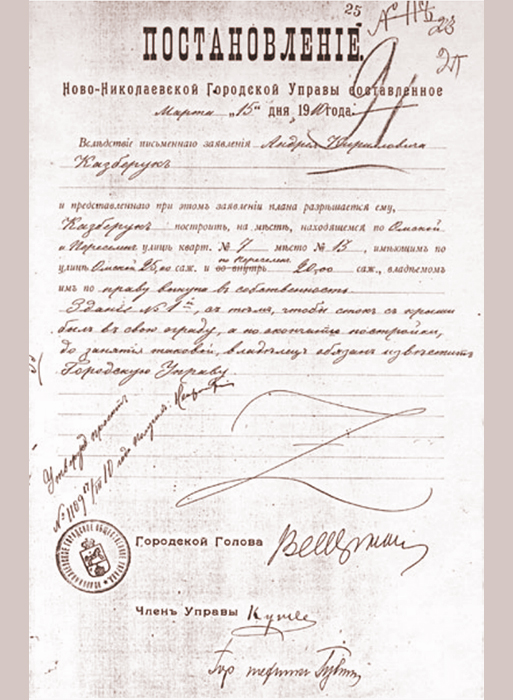 25
23
2п
ПОСТАНОВЛЕНІЕ.
Ново-Николаевской Городской Управы составленное
Марта „15" дня 1910 года.
Вслѣдствіе письменнаго заявленія Андрея Кирилловича
Казберукъ
и представленнаго при этомъ заявленіи плана разрѣшается ему,
Казберукъ построить, на мѣстѣ, находящемся по Омской
и Переселен. улицѣ кварт. № 7 мѣсто № 13, имѣющимъ по
по Переселен.
улицѣ Омской 25,00 саж. и во внутрь 20,00 саж., владѣемомъ
имъ по праву выкупа въ собственность
Зданіе № 1й, съ тѣмъ, чтобы стокъ съ крыши
былъ въ свою ограду, а по окончаніи постройки,
до занятія таковой, владѣлецъ обязанъ извѣстить
Городскую Управу
Городской Голова
Членъ Управы
Гор.